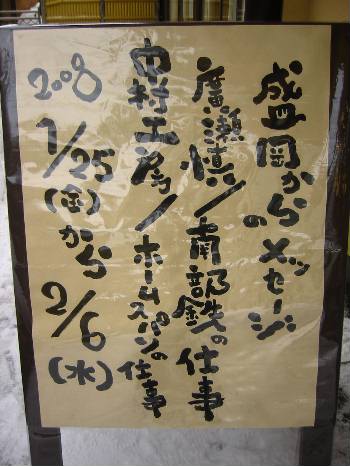 盛岡からのメッセージ
廣瀬慎/南部鉄の仕事
中村工房/ホームスパンの仕事
2008
1/25(金)から2/6(水)